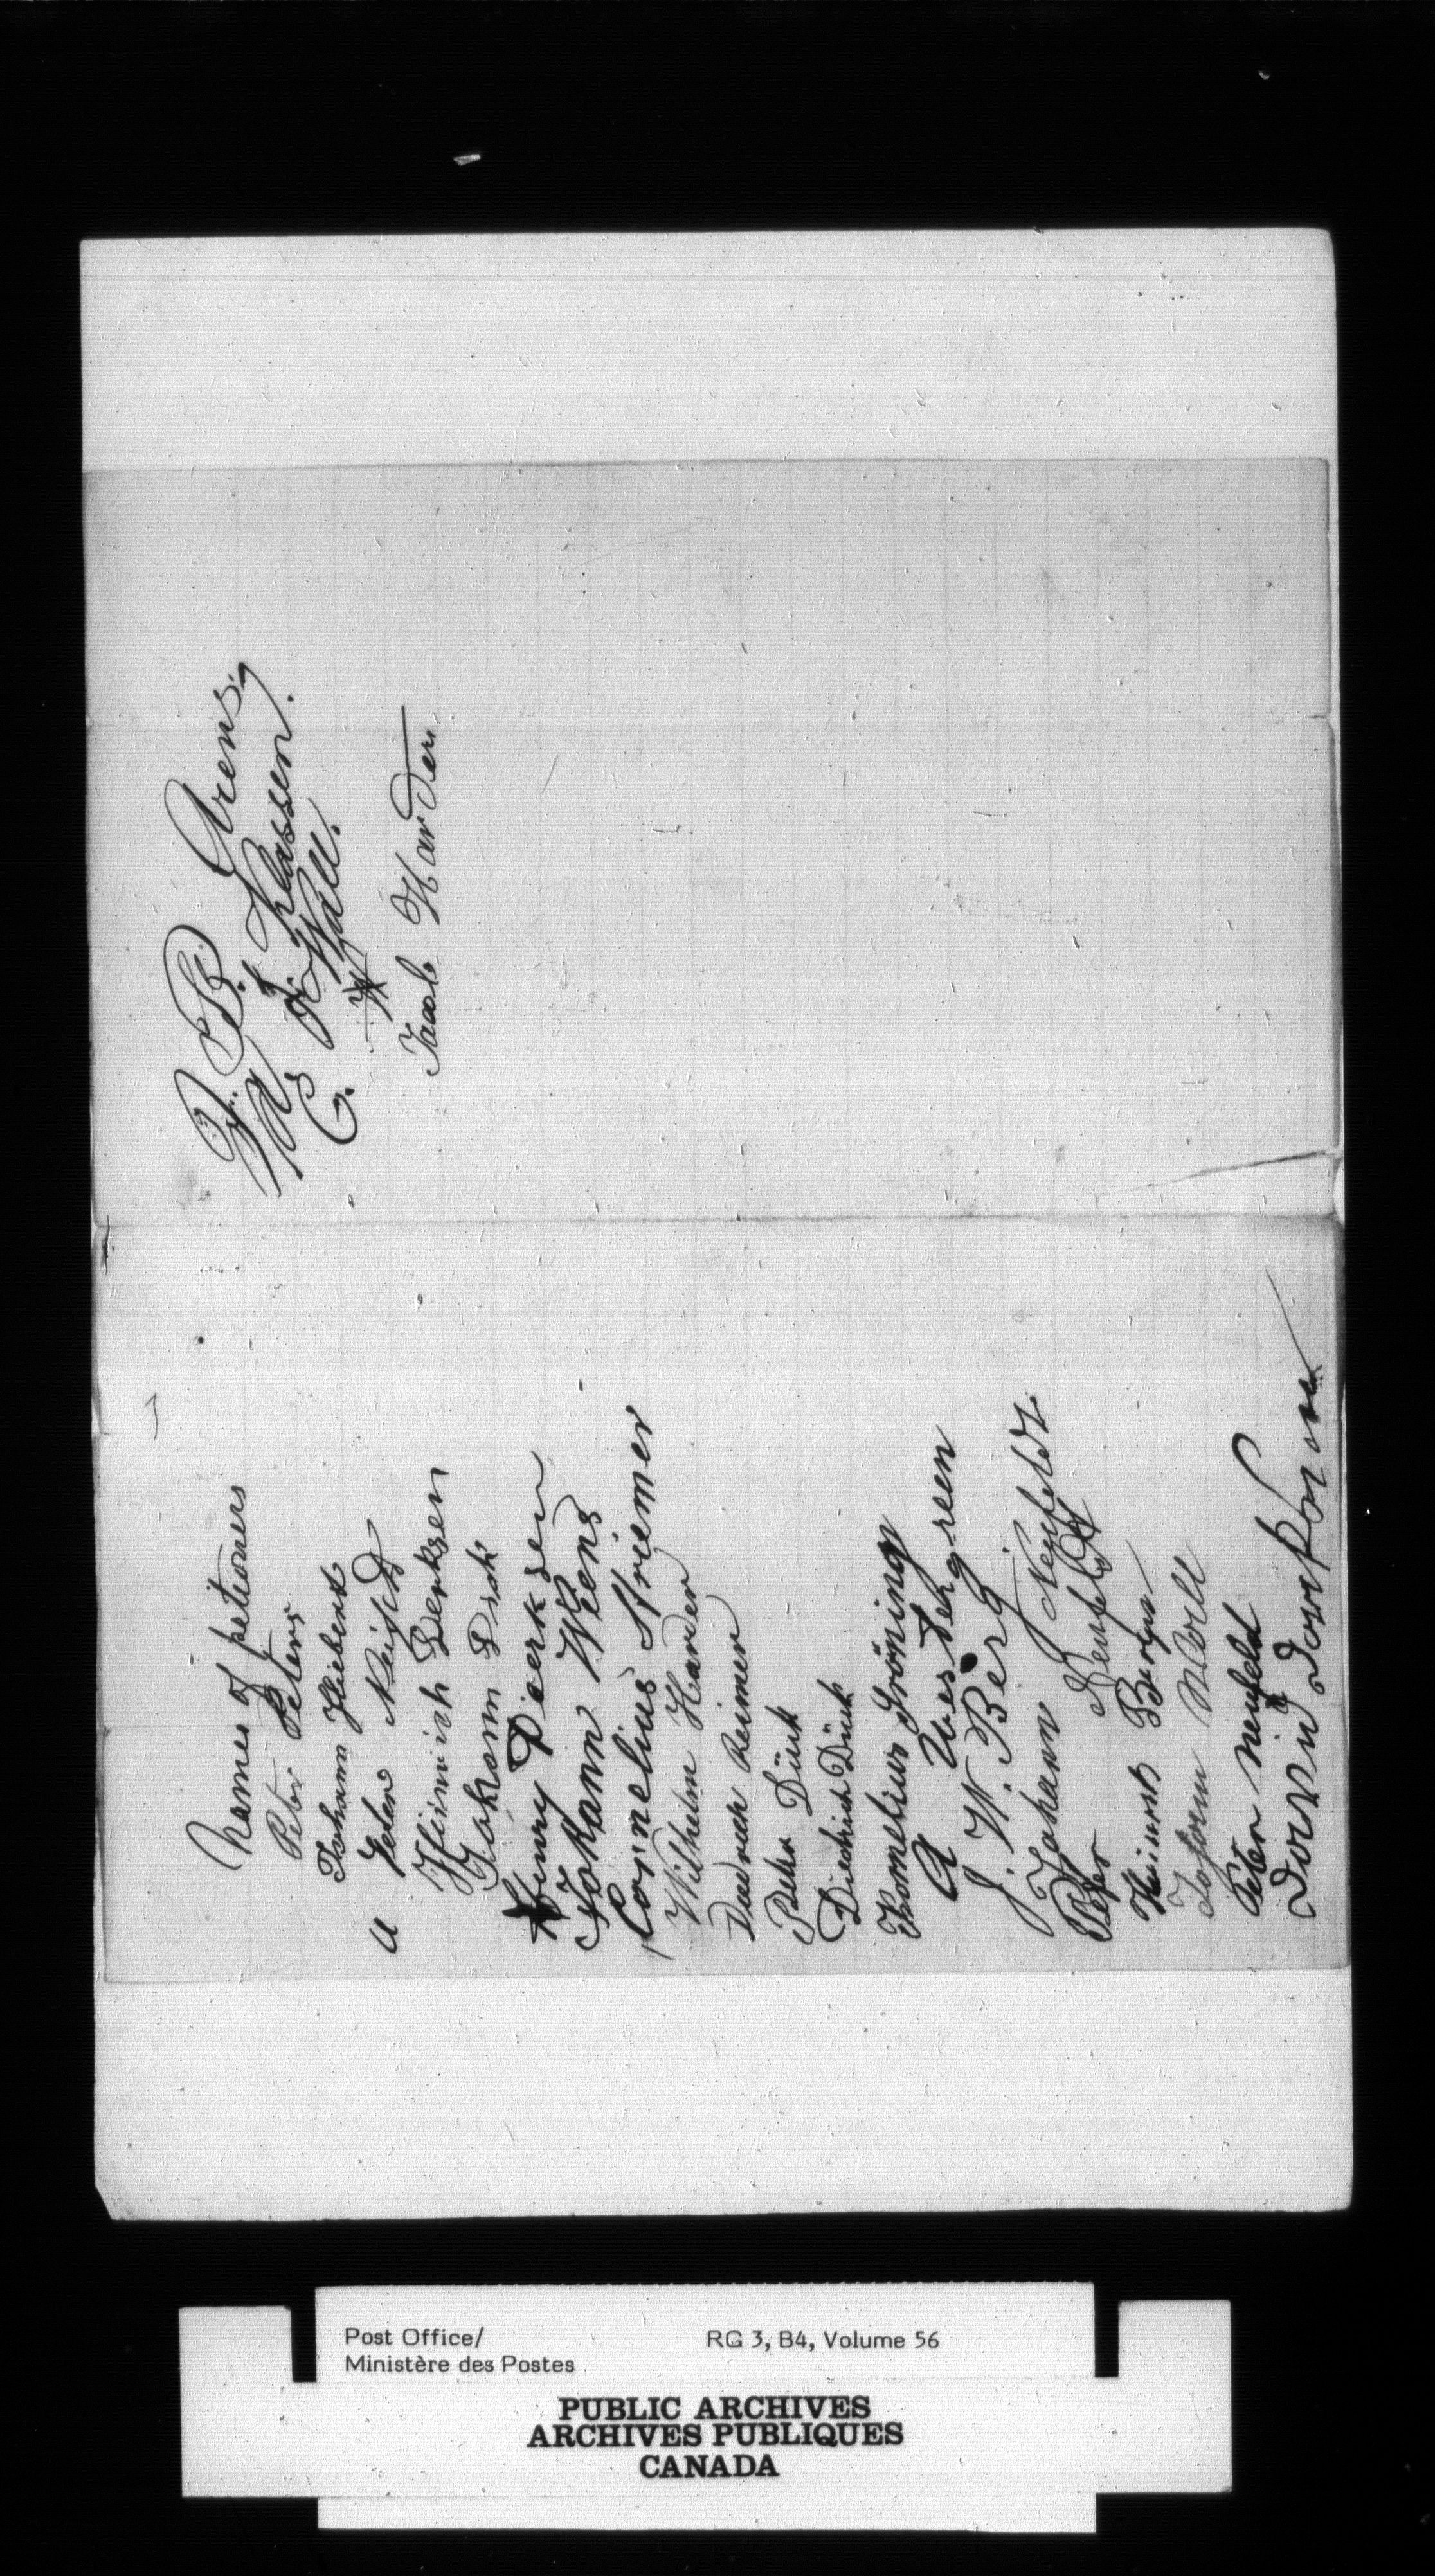 Names of petioners
Peter Peters
Johann Hiebert
Peter
Heinrich Derksen
Johann
Henry Dierksen
Johann Wiens
Cornelius Striemer
Wilhelm Harder
Diedrich Reimer
Peter Dück
Diedrich Dück
Kornelius Gröning
A
J. W. Berg
Johann Neufeldt
Peter Neufeldt
Heinrich
Johann Woelk
Peter neufeld
David
B. Arens,
Klassen.
C. F. Wall.
W
Jacob Harder
Post Office/
Ministère des Postes
RG 3, B4, Volume 56
PUBLIC ARCHIVES
ARCHIVES PUBLIQUES
CANADA